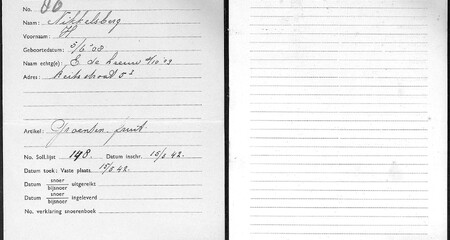 No. 66
Naam: Nikkelsberg
Voornaam: H
Geboortedatum: 5/6 '08
Naam echtg(e): E de Leeuw 4/10 '09
Adres:
Artikel: Groenten fruit
No. Soll.lijst 148. Datum inschr. 15/5 42.
Datum toek: Vaste plaats 15/5 42.
Datum snoer/bijsnoer uitgereikt
Datum snoer/bijsnoer ingeleverd
No. verklaring snoerenboek